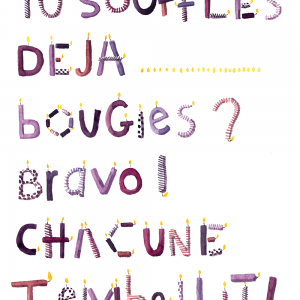 TU SOUFFLES
DEJA ..................
BOUGIES ?
Bravo !
CHACUNE